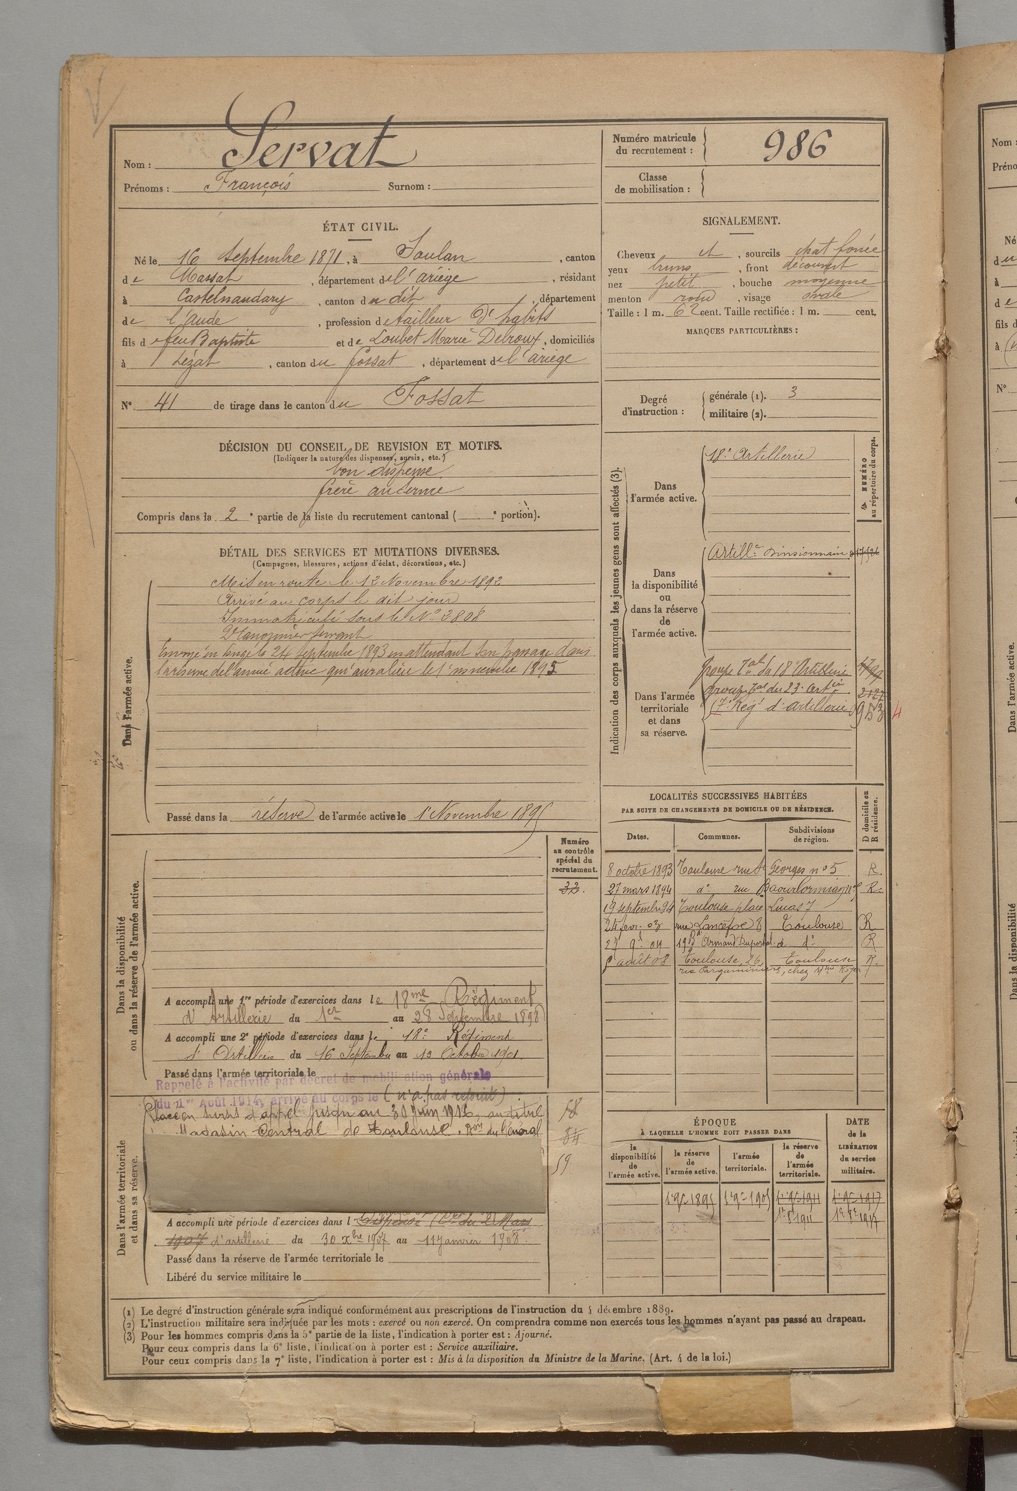 Nom : Servat
Prénoms : François Surnom :
ÉTAT CIVIL.
Né le 16 Septembre 1871, à Soulan, canton
de Massat, département de l'ariège, résidant
à Castelnaudary, canton du dit, département
de l'aude, profession de tailleur d'habits
fils de feu Baptiste et de Loubet Marie Delroux, domiciliés
à Lézat, canton du fossat, département de l'ariège
N° 41 de tirage dans le canton du Fossat
DÉCISION DU CONSEIL DE REVISION ET MOTIFS.
(Indiquer la nature des dispenses, sursis, etc.)
bon dispense
frère au service
Compris dans la 2e partie de la liste du recrutement cantonal ( e portion).
DÉTAIL DES SERVICES ET MUTATIONS DIVERSES.
(Campagnes, blessures, actions d'éclat, décorations, etc.)
Dans l'armée active.
Mis en route le 12 Novembre 1892
Arrivé au corps le dit jour
Immatriculé sous le N° 3808
2e canonnier servant
Envoyé en congé le 24 septembre 1893 en attendant son passage dans
la réserve de l'armée active qui aura lieu le 1er novembre 1895
Passé dans la réserve de l'armée active le 1er Novembre 1895
Numéro
au contrôle
spécial du
recrutement.
33
Dans la disponibilité
ou dans la réserve de l'armée active.
A accompli une 1re période d'exercices dans le 18me Régiment
d'Artillerie du 1er au 28 Septembre 1898
A accompli une 2e période d'exercices dans le 18e Régiment
d'Artillerie du 16 Septembre au 13 Octobre 1901
Passé dans l'armée territoriale le
Rappelé à l'activité par décret de mobilisation générale
du 1er Août 1914, arrivé au corps le (n'a pas rejoint).
Dans l'armée territoriale
et dans sa réserve.
Placé en sursis d'appel jusqu'au 30 Juin 1916, au titre
Magasin Central de Toulouse,
A accompli une période d'exercices dans l
1907 d'artillerie du 30 xbre 1907 au 11 janvier 1908
Passé dans la réserve de l'armée territoriale le
Libéré du service militaire le
Numéro matricule
du recrutement : 986
Classe
de mobilisation :
SIGNALEMENT.
Cheveux et, sourcils chat foncé
yeux bruns, front découvert
nez petit, bouche moyenne
menton rond, visage ovale
Taille : 1 m. 62 cent. Taille rectifiée : 1 m. cent.
MARQUES PARTICULIÈRES :
Degré
d'instruction :
générale (1). 3
militaire (2).
Indication des corps auxquels les jeunes gens sont affectés (3).
NUMÉRO
au répertoire du corps.
Dans
l'armée active.
18e Artillerie
Dans
la disponibilité
ou
dans la réserve
de
l'armée active.
Artillie Divisionnaire
Dans l'armée
territoriale
et dans
sa réserve.
groupe Tal du 18e Artillerie
groupe Tal du 23e Artie
(7e Reg' d'artillerie)
LOCALITÉS SUCCESSIVES HABITÉES
PAR SUITE DE CHANGEMENTS DE DOMICILE OU DE RÉSIDENCE.
D domicile ou
R résidence.
Dates. Communes. Subdivisions
de région.
8 octobre 1893 Toulouse rue St Georges n° 5 R.
27 mars 1894 d° rue Baour Lormian R.
19 septembre 94 Toulouse place Lucas 7
rue Lancefoc 8 Toulouse R
d° R
août 08 Toulouse, 26, Toulouse R.
ÉPOQUE
À LAQUELLE L'HOMME DOIT PASSER DANS
DATE
de la
LIBÉRATION
du service
militaire.
la
disponibilité
de
l'armée active.
la réserve
de
l'armée active.
l'armée
territoriale.
la réserve
de
l'armée
territoriale.
1er 9bre 1895 1er 9bre 1905 1er 9bre 1911 1er 9bre 1917
(1) Le degré d'instruction générale sera indiqué conformément aux prescriptions de l'instruction du 4 décembre 1889.
(2) L'instruction militaire sera indiquée par les mots : exercé ou non exercé. On comprendra comme non exercés tous les hommes n'ayant pas passé au drapeau.
(3) Pour les hommes compris dans la 5e partie de la liste, l'indication à porter est : Ajourné.
Pour ceux compris dans la 6e liste, l'indication à porter est : Service auxiliaire.
Pour ceux compris dans la 7e liste, l'indication à porter est : Mis à la disposition du Ministre de la Marine. (Art. 4 de la loi.)